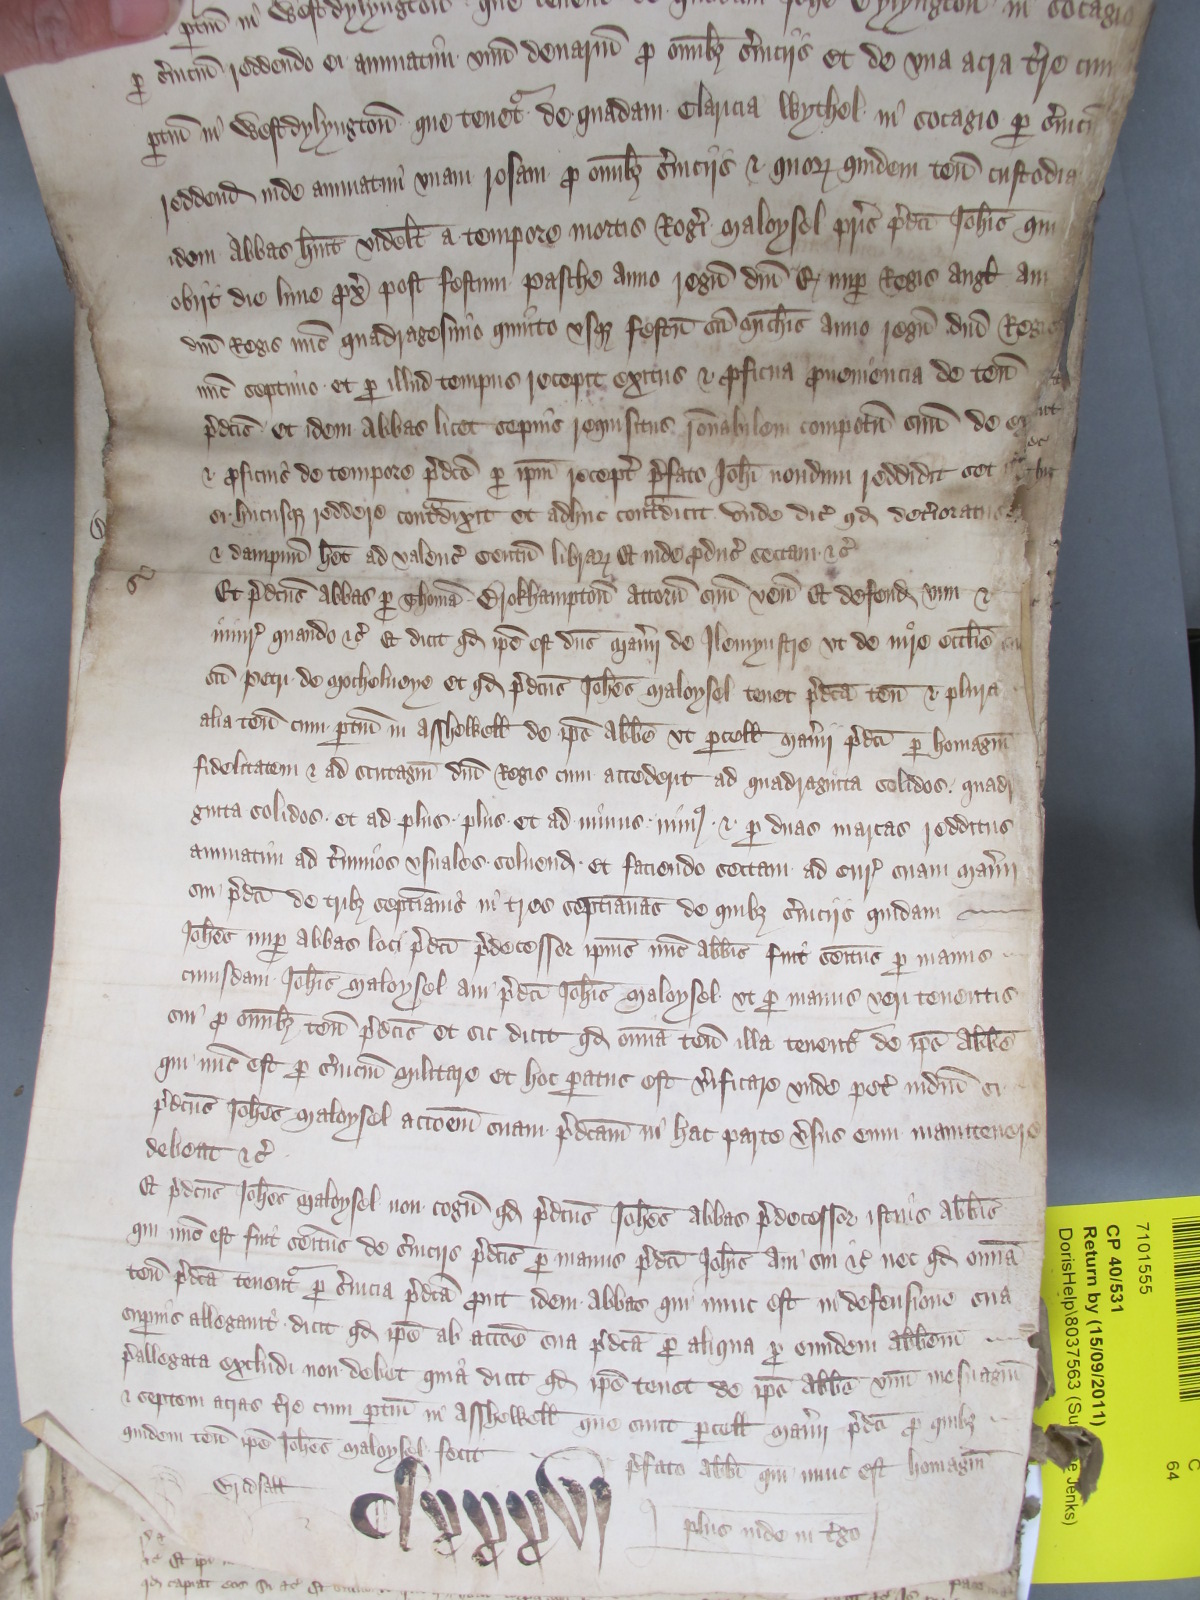 ptin in Westdylyngton que tenent de quodam Johe Dylyngton in socagio
p s'uiciu reddendo ei annuatim vnu denariu p omib3 s'uiciis et de vna acra t're cum
ptin in Westdylyngton que tenet' de quadam Claricia Wythel in socagio p s'uiciu
reddend inde annuatim vnam rosam p omib3 s'uiciis & quor quidem ten custodia
idem Abbas huit videlt a tempore mortis Rogi Maloysel pris p'dci Johis qui
obiit die lune px' post festum pasche anno regni dni R nup Regis angl aui
dni Regis nunc quadragesimo quinto vsq festu sci Michis anno regni dni Regis
nunc septimo et p illud tempus recepit exitus & pficua proueniencia de ten
p'dcis et idem Abbas licet sepius requisitus ronabilem compotu suu de
& pficuis de tempore p'dco p ipm recept' p'fato Johi nondum reddidit set
ei hucusq reddere contradixit et adhuc contradicit vnde dic' qd det'ioratus
& dampnu het ad valenc' centu librar Et inde pduc' sectam &c'
Et p'dcus Abbas p Thoma Brokhampton attorn suu ven Et defend vim &
iniur' quando &c' Et dicit qd ipe est dns Man'ii de Ilemynstre vt de iure ecclie
sci Petri de Mochelneye et qd p'dcus Johes Maloysel tenet p'dca ten & plura
alia ten cum ptin in Asshewell de ipo Abbe vt pcell man'ii p'dci p homagiu
fidelitatem & ad scutagiu dni Regis cum acciderit ad quadraginta solidos quadra
ginta solidos et ad plus plus et ad minus min' & p duas marcas redditus
annuatim ad t'minos vsuales soluend et faciendo sectam ad cur' suam Man'ii
sui p'dci de trib3 septianis in tres septianas de quib3 s'uiciis quidam
Johes nup Abbas loci p'dci p'decessor ipius nunc Abbis fuit seitus p manus
cuiusdam Johis Maloysel aui p'dci Johis Maloysel vt p manus veri tenentis
sui p omib3 ten p'dcis et sic dicit qd omia ten illa tenent' de ipo Abbe
qui nunc est p s'uiciu militare et hoc patus est v'ificare vnde pet' iudiciu si
p'dcus Johes Maloysel accoem suam p'dcam in hac parte v'sus eum manutenere
debeat &c'
Et p'dcus Johes Maloysel non cogn qd p'dcus Johes Abbas p'decessor istius Abbis
qui nunc est fuit seitus de s'uiciis p'dcis p manus p'dci Johis Aui sui &c' nec qd omia
ten p'dca tenent' p s'uicia p'dca prout idem Abbas qui nunc est in defensione sua
supius allegauit dicit qd ipe ab accoe sua p'dca p aliqua p eundem Abbem
p'allegata excludi non debet quia dicit qd ipe tenet de ipo Abbe vnu mesuagiu
& septem acras t're cum ptin in Asshewell que sunt pcell man'ii p'dci p quib3
quidem ten ipe Johes Maloysel fecit p'fato Abbi qui nunc est homagiu
plus inde in t'go
7101555
CP 40/531
Return by (15/09/2011)
DorisHelp\8037563 (Su
e Jenks)
64
C